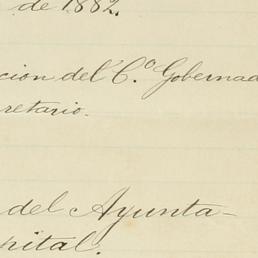 de 1882.
cion del C.º Gobernad
retario.
del Ayunta-
pital.